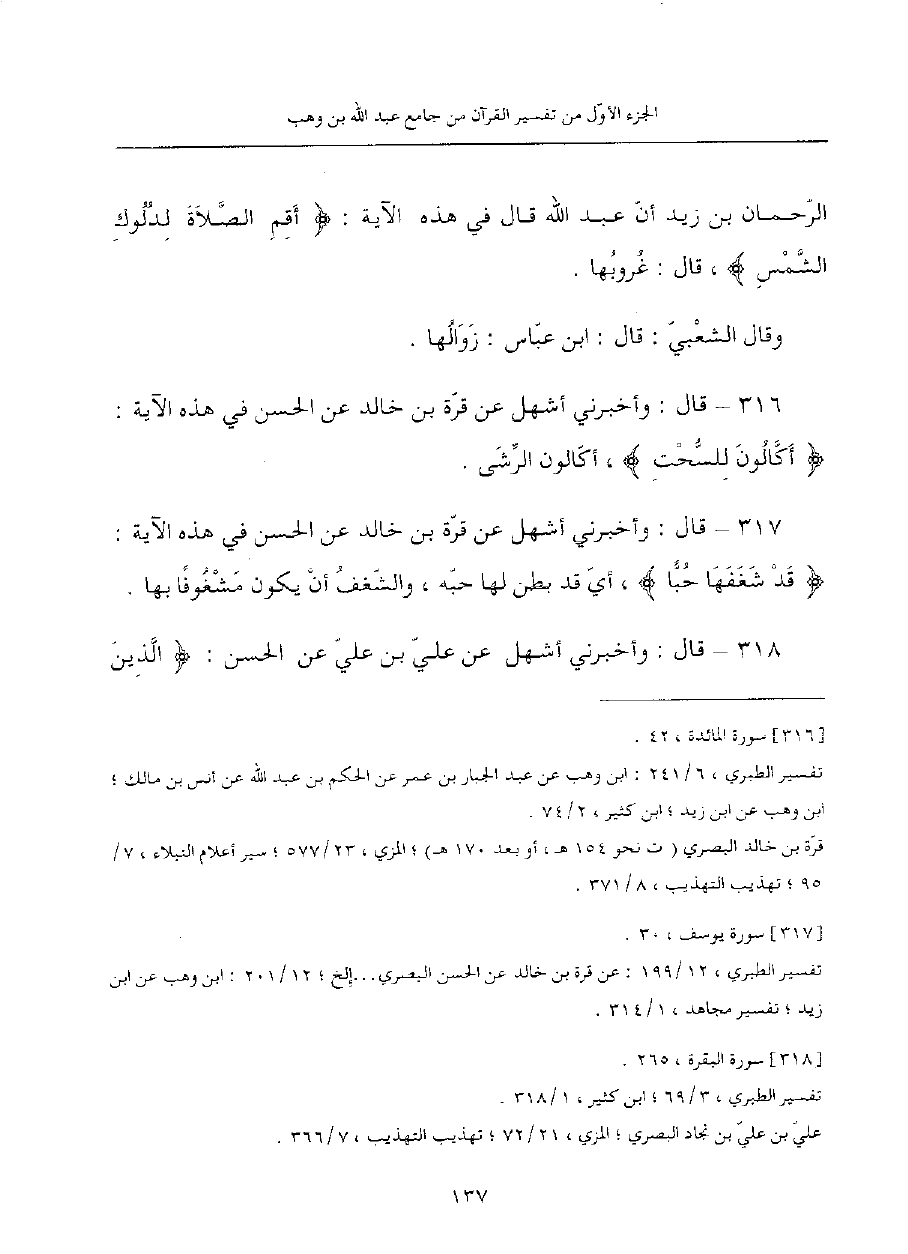 الجزء الأوّل من تفسير القرآن من جامع عبد الله بن وهب
الرّحمان بن زيد أنّ عبد الله قال في هذه الآية : ﴿ أَقِمِ الصَّلاَةَ لِدُلُوكِ
الشَّمْسِ ﴾ ، قال : غُروبُها .
وقال الشعْبيّ : قال : ابن عبّاس : زَوَالُها .
٣١٦ – قال : وأخبرني أشهل عن قرّة بن خالد عن الحسن في هذه الآية :
﴿ أَكَّالُونَ لِلسُّحْتِ ﴾ ، أكّالون الرِّشَى .
٣١٧ – قال : وأخبرني أشهل عن قرّة بن خالد عن الحسن في هذه الآية :
﴿ قَدْ شَغَفَهَا حُبًّا ﴾ ، أيّ قد بطن لها حبّه ، والشّغفُ أنْ يكون مَشْغُوفًا بها .
٣١٨ – قال : وأخبرني أشهل عن عليّ بن عليّ عن الحسن : ﴿ الَّذِينَ
[٣١٦] سورة المائدة ، ٤٢ .
تفسير الطبري ، ٢٤١/٦ : ابن وهب عن عبد الجبار بن عمر عن الحكم بن عبد الله عن أنس بن مالك ؛
ابن وهب عن ابن زيد ؛ ابن كثير ، ٧٤/٢ .
قرّة بن خالد البصري ( ت نحو ١٥٤ هـ ، أو بعد ١٧٠ هـ) ؛ المزي ، ٥٧٧/٢٣ ؛ سير أعلام النبلاء ، ٧/
٩٥ ؛ تهذيب التهذيب ، ٣٧١/٨ .
[٣١٧] سورة يوسف ، ٣٠ .
تفسير الطبري ، ١٩٩/١٢ : عن قرة بن خالد عن الحسن البصري...إلخ ؛ ٢٠١/١٢ : ابن وهب عن ابن
زيد ؛ تفسير مجاهد ، ٣١٤/١ .
[٣١٨] سورة البقرة ، ٢٦٥ .
تفسير الطبري ، ٦٩/٣ ؛ ابن كثير ، ٣١٨/١ .
عليّ بن عليّ بن نجاد البصري ؛ المزي ، ٧٢/٢١ ؛ تهذيب التهذيب ، ٣٦٦/٧ .
١٣٧